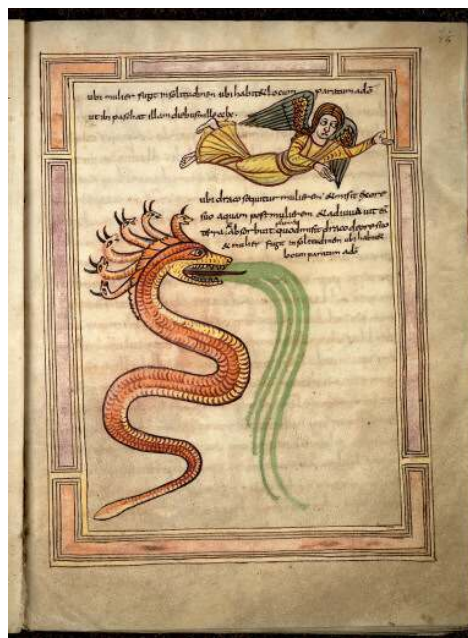 ubi mulier fugit in solitudinem ubi habet locum paratum a dō
ut ibi pascat illam diebus mille cclx.
ubi draco sequitur mulierem & misit ex ore
suo aquam post mulierem & adiuvit eā
terra & absorbuit flumen quod misit draco de ore suo
& mulier fugit in solitudinem ubi habet
locum paratum a dō